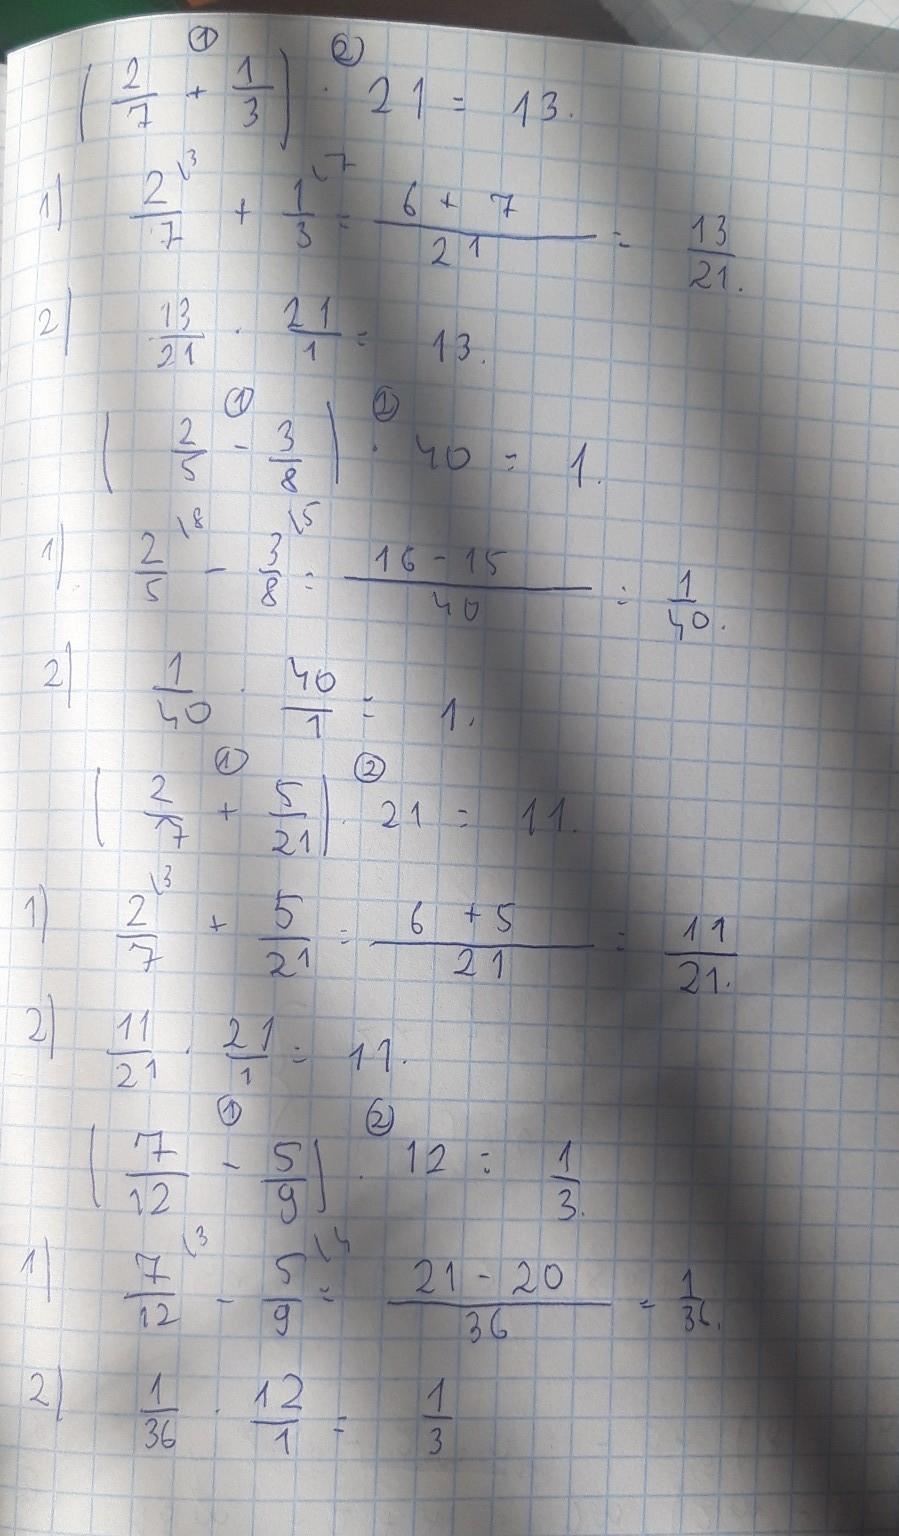 (2/7 + 1/3) ① ② · 21 = 13.
1) 2/7 \3 + 1/3 \7 = (6 + 7)/21 = 13/21.
2) 13/21 · 21/1 = 13.
(2/5 - 3/8) ① ② · 40 = 1.
1) 2/5 \8 - 3/8 \5 = (16 - 15)/40 = 1/40.
2) 1/40 · 40/1 = 1.
(2/7 + 5/21) ① ② · 21 = 11.
1) 2/7 \3 + 5/21 = (6 + 5)/21 = 11/21.
2) 11/21 · 21/1 = 11.
(7/12 - 5/9) ① ② · 12 = 1/3.
1) 7/12 \3 - 5/9 \4 = (21 - 20)/36 = 1/36.
2) 1/36 · 12/1 = 1/3